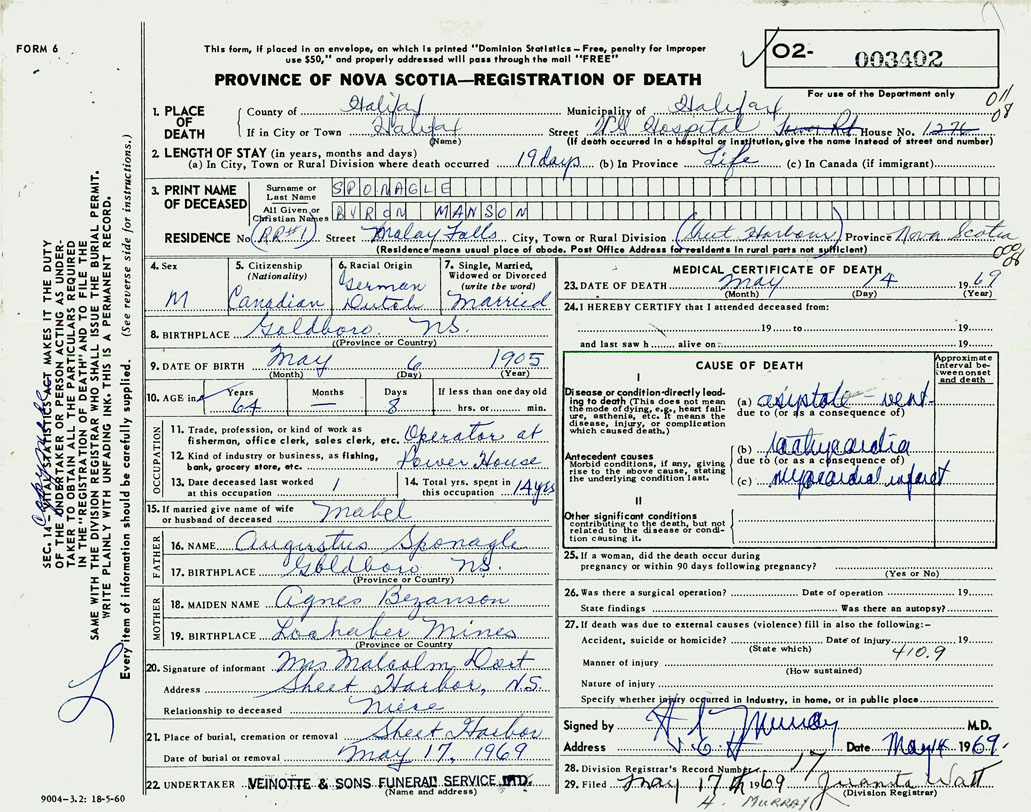 FORM 6
This form, if placed in an envelope, on which is printed "Dominion Statistics—Free, penalty for improper
use $50," and properly addressed will pass through the mail "FREE"
PROVINCE OF NOVA SCOTIA—REGISTRATION OF DEATH
O2- 003402
For use of the Department only
011
08
1. PLACE OF DEATH County of Halifax Municipality of Halifax
If in City or Town Halifax Street V.G. Hospital Tower Rd House No. 1276
(Name) (If death occurred in a hospital or institution, give the name instead of street and number)
2. LENGTH OF STAY (in years, months and days)
(a) In City, Town or Rural Division where death occurred 19 days (b) In Province Life (c) In Canada (if immigrant)
3. PRINT NAME OF DECEASED Surname or Last Name SPONAGLE
All Given or Christian Names BYRON MANSON
RESIDENCE No (RR#1) Street Malay Falls City, Town or Rural Division (Sheet Harbour) Province Nova Scotia
(Residence means usual place of abode. Post Office Address for residents in rural parts not sufficient)
4. Sex M
5. Citizenship (Nationality) Canadian
6. Racial Origin German Dutch
7. Single, Married, Widowed or Divorced (write the word) Married
8. BIRTHPLACE Goldboro NS.
(Province or Country)
9. DATE OF BIRTH May 6 1905
(Month) (Day) (Year)
10. AGE in Years 64 Months — Days 8 If less than one day old
hrs. or min.
OCCUPATION
11. Trade, profession, or kind of work as
fisherman, office clerk, sales clerk, etc. Operator at
12. Kind of industry or business, as fishing,
bank, grocery store, etc. Power House
13. Date deceased last worked at this occupation 1
14. Total yrs. spent in this occupation 14 yrs
15. If married give name of wife
or husband of deceased Mabel
FATHER
16. NAME Augustus Sponagle
17. BIRTHPLACE Goldboro NS.
(Province or Country)
MOTHER
18. MAIDEN NAME Agnes Bezanson
19. BIRTHPLACE Lochaber Mines
(Province or Country)
20. Signature of informant Mrs Malcolm Dort
Address Sheet Harbor, N.S.
Relationship to deceased Niece
21. Place of burial, cremation or removal Sheet Harbor
Date of burial or removal May 17, 1969
22. UNDERTAKER VEINOTTE & SONS FUNERAL SERVICE LTD.
(Name and address)
MEDICAL CERTIFICATE OF DEATH
23. DATE OF DEATH May 14 1969
(Month) (Day) (Year)
24. I HEREBY CERTIFY that I attended deceased from:
19 to 19
and last saw h alive on: 19
CAUSE OF DEATH
Approximate interval between onset and death
I
Disease or condition directly leading to death (This does not mean the mode of dying, e.g., heart failure, asthenia, etc. It means the disease, injury, or complication which caused death.)
(a) asistole - vent.
due to (or as a consequence of)
Antecedent causes
Morbid conditions, if any, giving rise to the above cause, stating the underlying condition last.
(b) tachycardia
due to (or as a consequence of)
(c) myocardial infarct
II
Other significant conditions
contributing to the death, but not related to the disease or condition causing it.
25. If a woman, did the death occur during
pregnancy or within 90 days following pregnancy?
(Yes or No)
26. Was there a surgical operation? Date of operation 19
State findings Was there an autopsy?
27. If death was due to external causes (violence) fill in also the following:-
Accident, suicide or homicide? Date of injury 19
(State which) 410.9
Manner of injury
(How sustained)
Nature of injury
Specify whether injury occurred in Industry, in home, or in public place
Signed by H S Murray M.D.
Address V.G.H Date May 14 1969.
28. Division Registrar's Record Number 17
29. Filed May 17th 1969 Juanita Watt
(Division Registrar)
H. MURRAY
SEC. 14—VITAL STATISTICS ACT MAKES IT THE DUTY
OF THE UNDERTAKER OR PERSON ACTING AS UNDER-
TAKER TO OBTAIN ALL THE PARTICULARS REQUIRED
IN THE "REGISTRATION OF DEATH" AND TO FILE THE
SAME WITH THE DIVISION REGISTRAR WHO SHALL ISSUE THE BURIAL PERMIT.
WRITE PLAINLY WITH UNFADING INK. THIS IS A PERMANENT RECORD.
Every item of information should be carefully supplied. (See reverse side for instructions.)
9004-3.2: 18-5-60